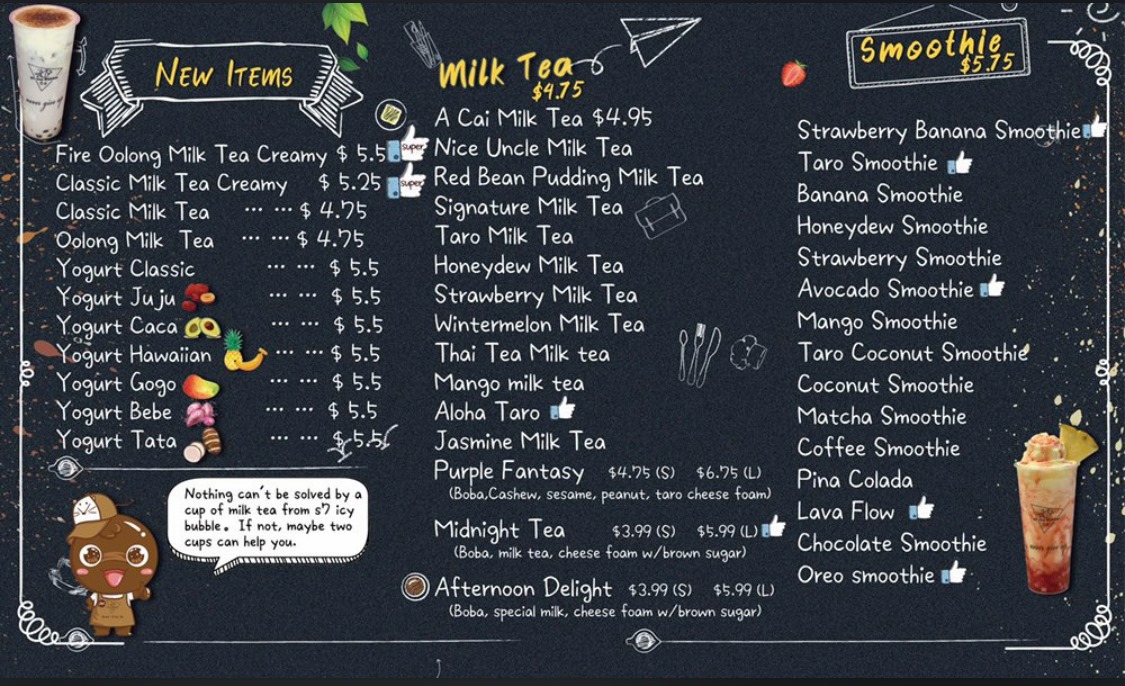 New Items
Fire Oolong Milk Tea Creamy $ 5.5
super
Classic Milk Tea Creamy $ 5.25
super
Classic Milk Tea ... ... $ 4.75
Oolong Milk Tea ... ... $ 4.75
Yogurt Classic ... ... $ 5.5
Yogurt Juju ... ... $ 5.5
Yogurt Caca ... ... $ 5.5
Yogurt Hawaiian ... ... $ 5.5
Yogurt Gogo ... ... $ 5.5
Yogurt Bebe ... ... $ 5.5
Yogurt Tata ... ... $ 5.5
Nothing can't be solved by a
cup of milk tea from s'7 icy
bubble. If not, maybe two
cups can help you.
Milk Tea
$4.75
A Cai Milk Tea $4.95
Nice Uncle Milk Tea
Red Bean Pudding Milk Tea
Signature Milk Tea
Taro Milk Tea
Honeydew Milk Tea
Strawberry Milk Tea
Wintermelon Milk Tea
Thai Tea Milk tea
Mango milk tea
Aloha Taro
Jasmine Milk Tea
Purple Fantasy $4.75 (S) $6.75 (L)
(Boba,Cashew, sesame, peanut, taro cheese foam)
Midnight Tea $3.99 (S) $5.99 (L)
(Boba, milk tea, cheese foam w/brown sugar)
Afternoon Delight $3.99 (S) $5.99 (L)
(Boba, special milk, cheese foam w/brown sugar)
Smoothie
$5.75
Strawberry Banana Smoothie
Taro Smoothie
Banana Smoothie
Honeydew Smoothie
Strawberry Smoothie
Avocado Smoothie
Mango Smoothie
Taro Coconut Smoothie
Coconut Smoothie
Matcha Smoothie
Coffee Smoothie
Pina Colada
Lava Flow
Chocolate Smoothie
Oreo smoothie